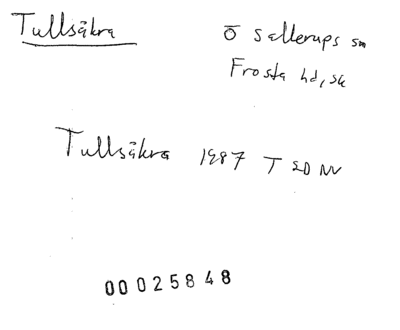 Tullsåkra
Ö Sallerups sn
Frosta hd, sk
Tullsåkra 1987 T 2D NV
00025848